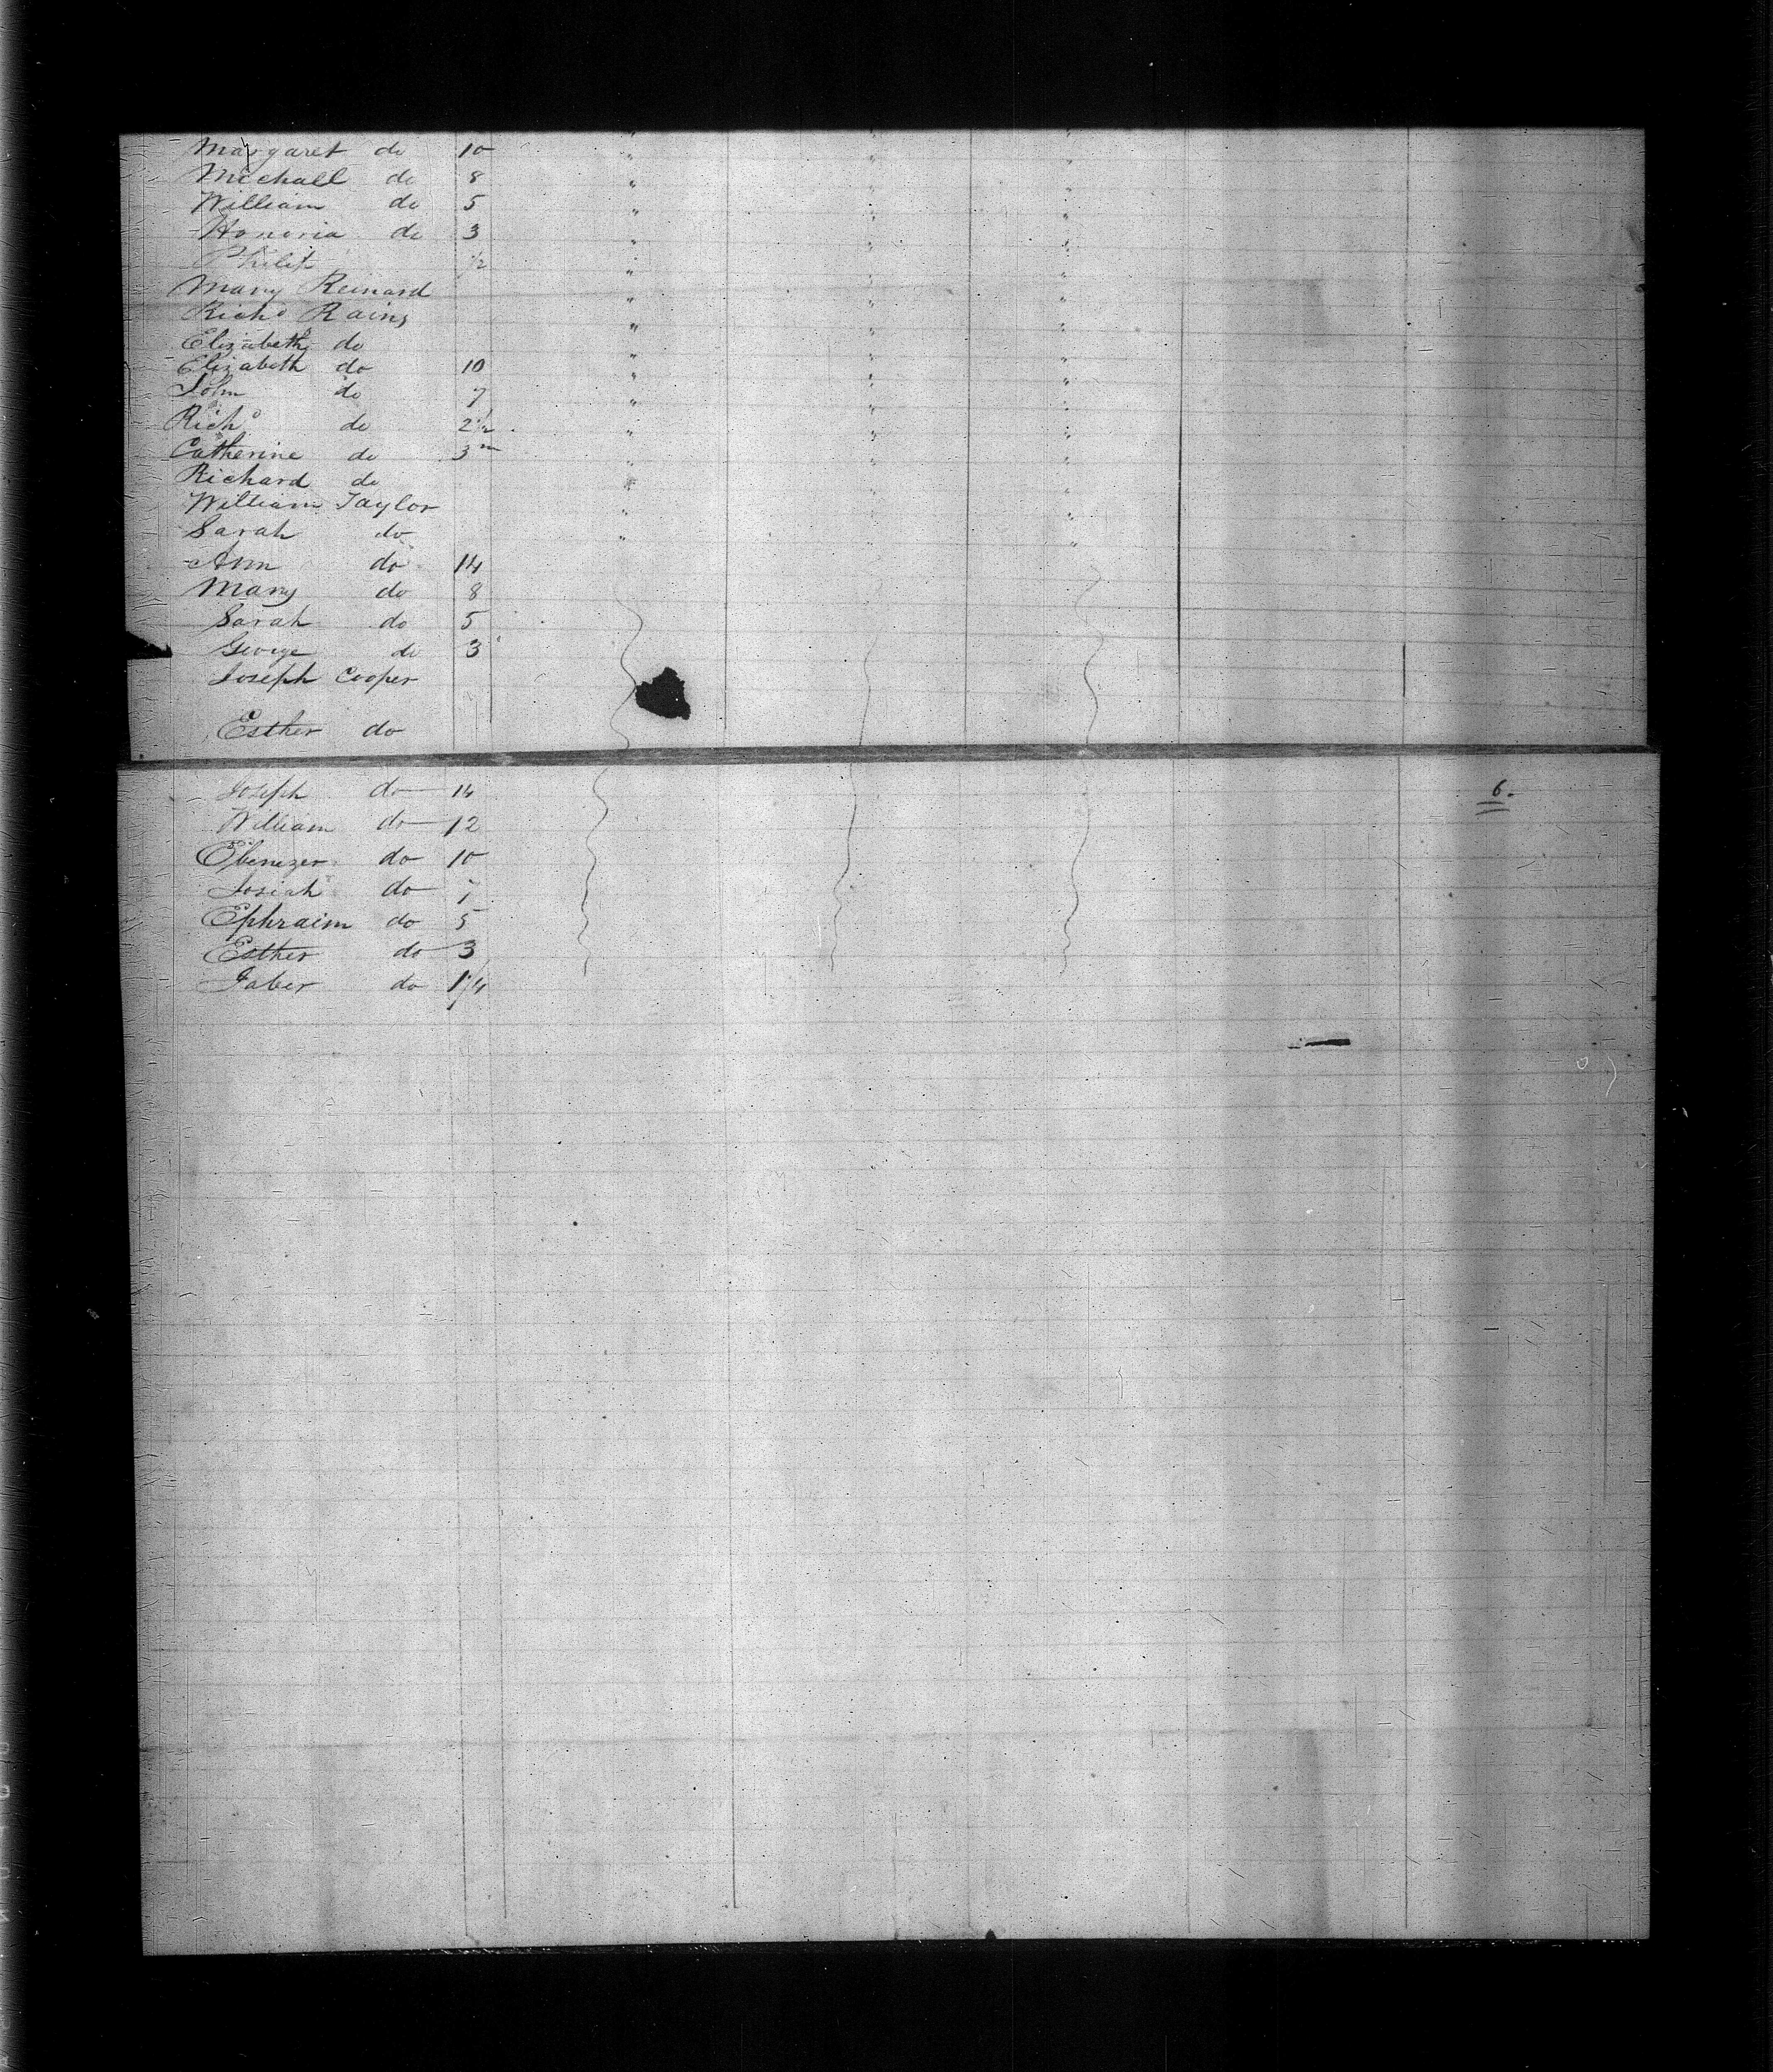 Margaret do 10 " " "
Michall do 8 " " "
William do 5 " " "
Honoria do 3 " " "
Philip 1/2 " " "
Mary Reinard " " "
Richd Rains " " "
Elizabeth do " " "
Elizabeth do 10 " " "
John do 7 " " "
Richd do 2 1/2 " " "
Catherine do 3m " " "
Richard do " " "
William Taylor " " "
Sarah do " "
Ann do 14
Mary do 8
Sarah do 5
George do 3
Joseph Cooper
Esther do
Joseph do 14 6.
William do 12
Ebenezer do 10
Josiah do 7
Ephraim do 5
Esther do 3
Jaber do 1/4